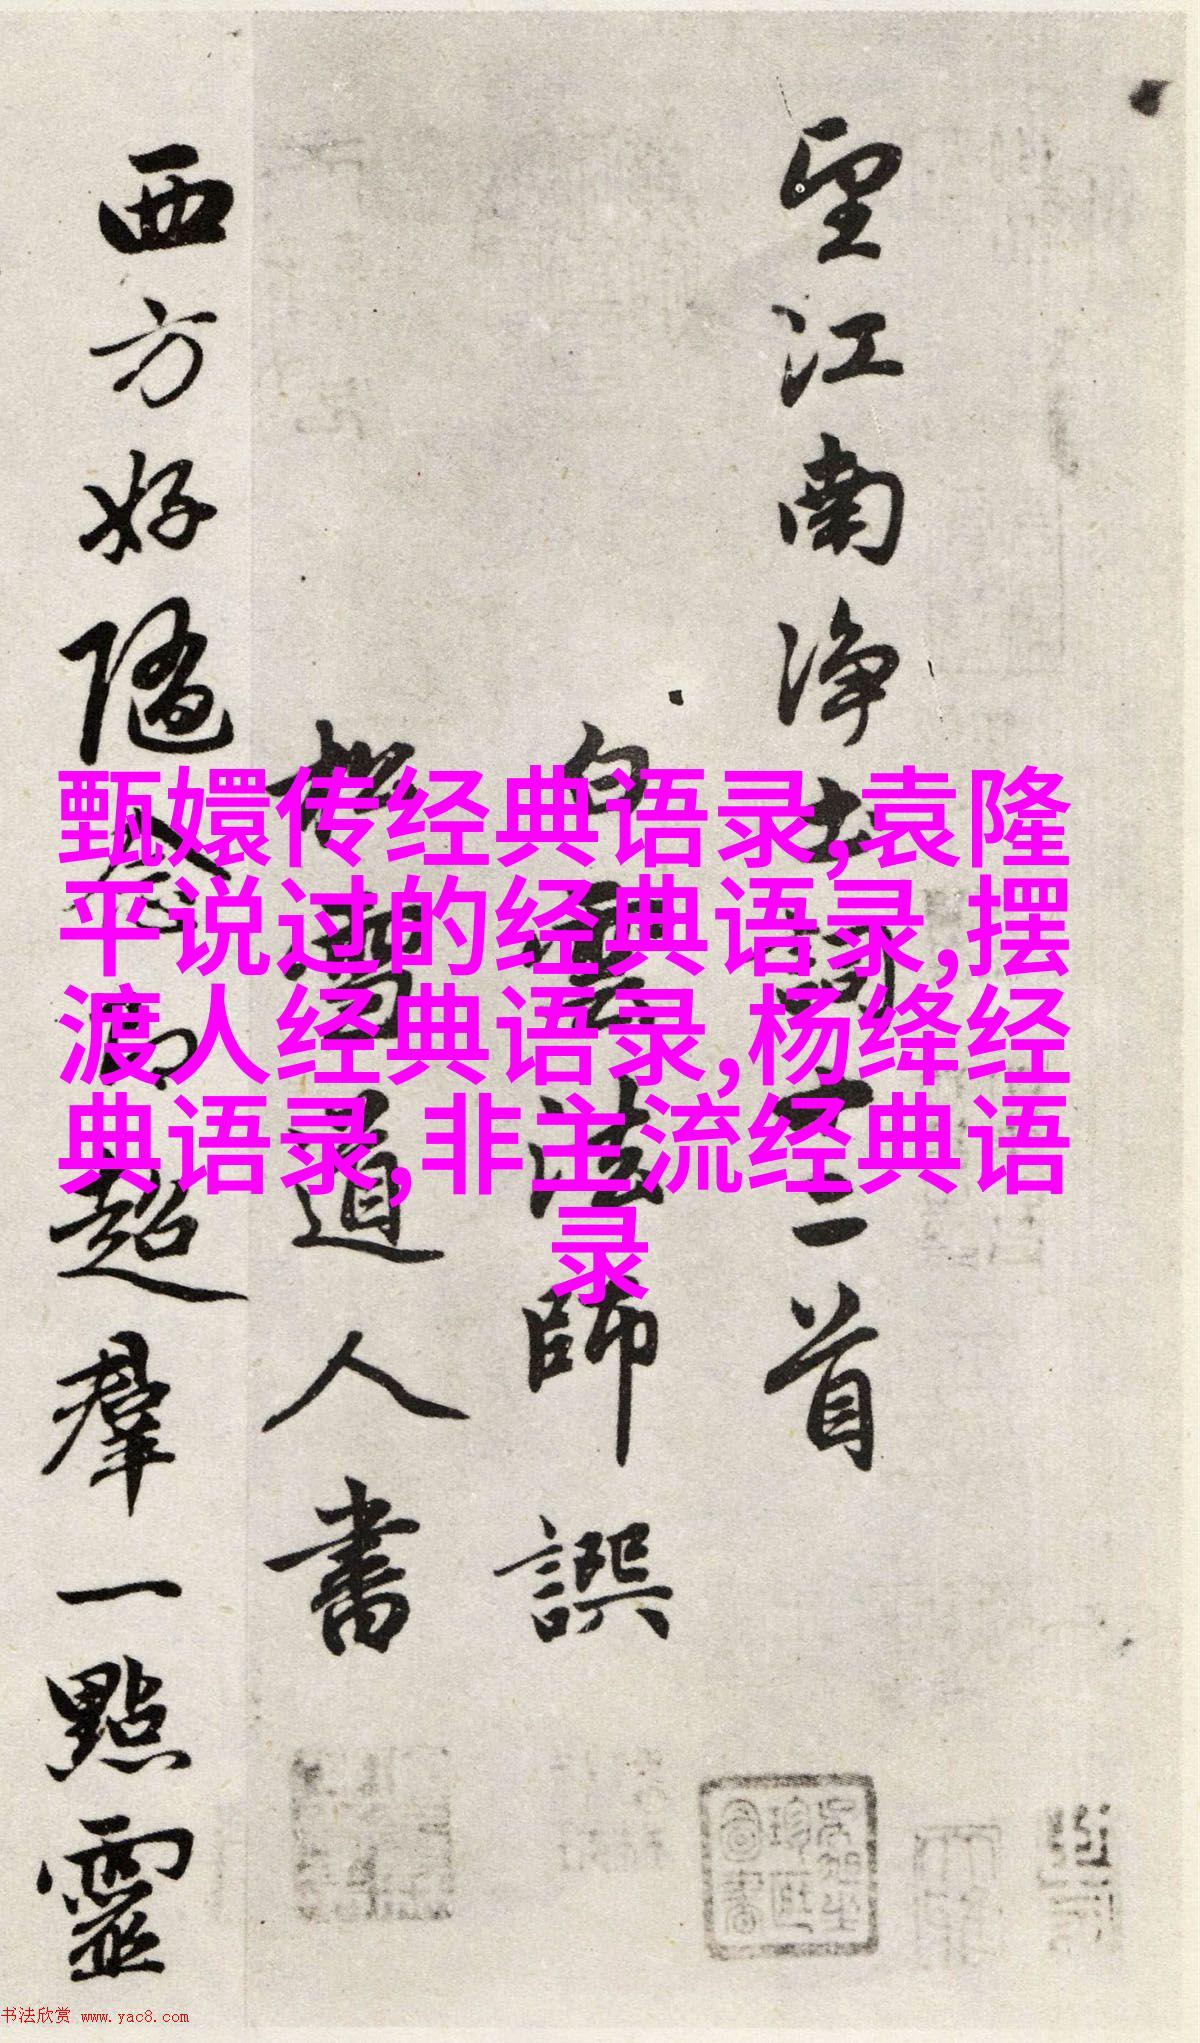 望江南净土詞十二首
白雲法師譔
松雪道人書
西方好隨念即超羣一點靈
甄嬛传经典语录,袁隆
平说过的经典语录,摆
渡人经典语录,杨绛经
典语录,非主流经典语
录
书法欣赏 www.yac8.com